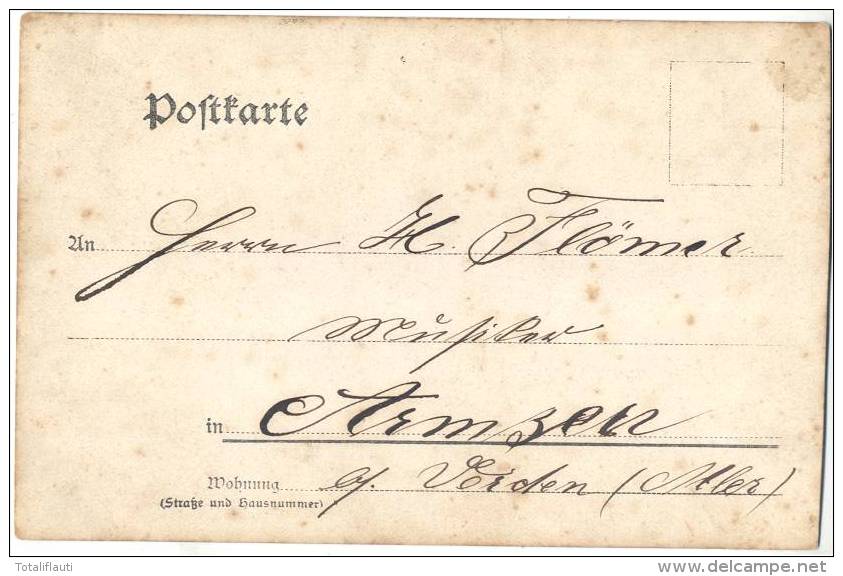 Postkarte
An Herrn H. Flömer
Musiker
in Armsen
Wohnung b/. Verden (Aller)
(Straße und Hausnummer)
Totaliflauti
delcampe.net